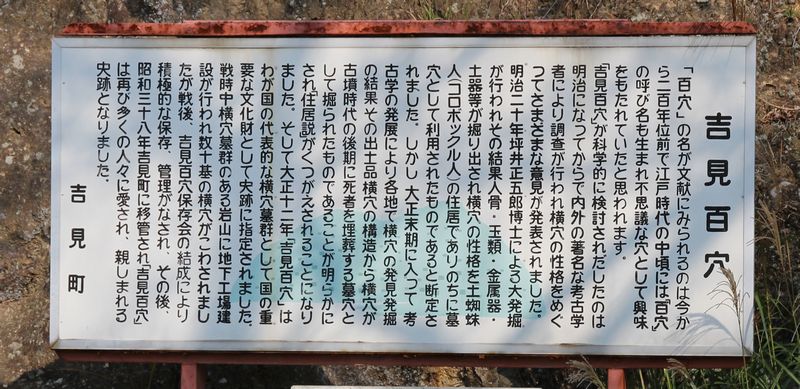 吉見百穴
「百穴」の名が文献にみられるのは今か
ら二百年位前で江戸時代の中頃には「百穴」
の呼び名も生まれ不思議な穴として興味
をもたれていたと思われます。
「吉見百穴が科学的に検討されだしたのは
明治になってからで内外の著名な考古学
者により調査が行われ横穴の性格をめぐ
ってさまざまな意見が発表されました。
明治二十年坪井正五郎博士による大発掘
が行われその結果人骨・玉類・金属器・
土器等が掘り出され横穴の性格を土蜘蛛
人(コロボックル人)の住居でありのちに墓
穴として利用されたものであると断定さ
れました。しかし 大正末期に入って 考
古学の発展により各地で横穴の発見発掘
の結果 その出土品横穴の構造から横穴が
古墳時代の後期に死者を埋葬する墓穴と
して掘られたものであることが明らかに
され「住居説」がくつがえされることになり
ました。そして大正十二年「吉見百穴」は
わが国の代表的な横穴墓群として国の重
要な文化財として史跡に指定されました。
戦時中横穴墓群のある岩山に地下工場建
設が行われ数十基の横穴がこわされまし
たが戦後、吉見百穴保存会の結成により
積極的な保存、管理がなされ、その後、
昭和三十八年吉見町に移管され「吉見百穴」
は再び多くの人々に愛され、親しまれる
史跡となりました。
吉見町